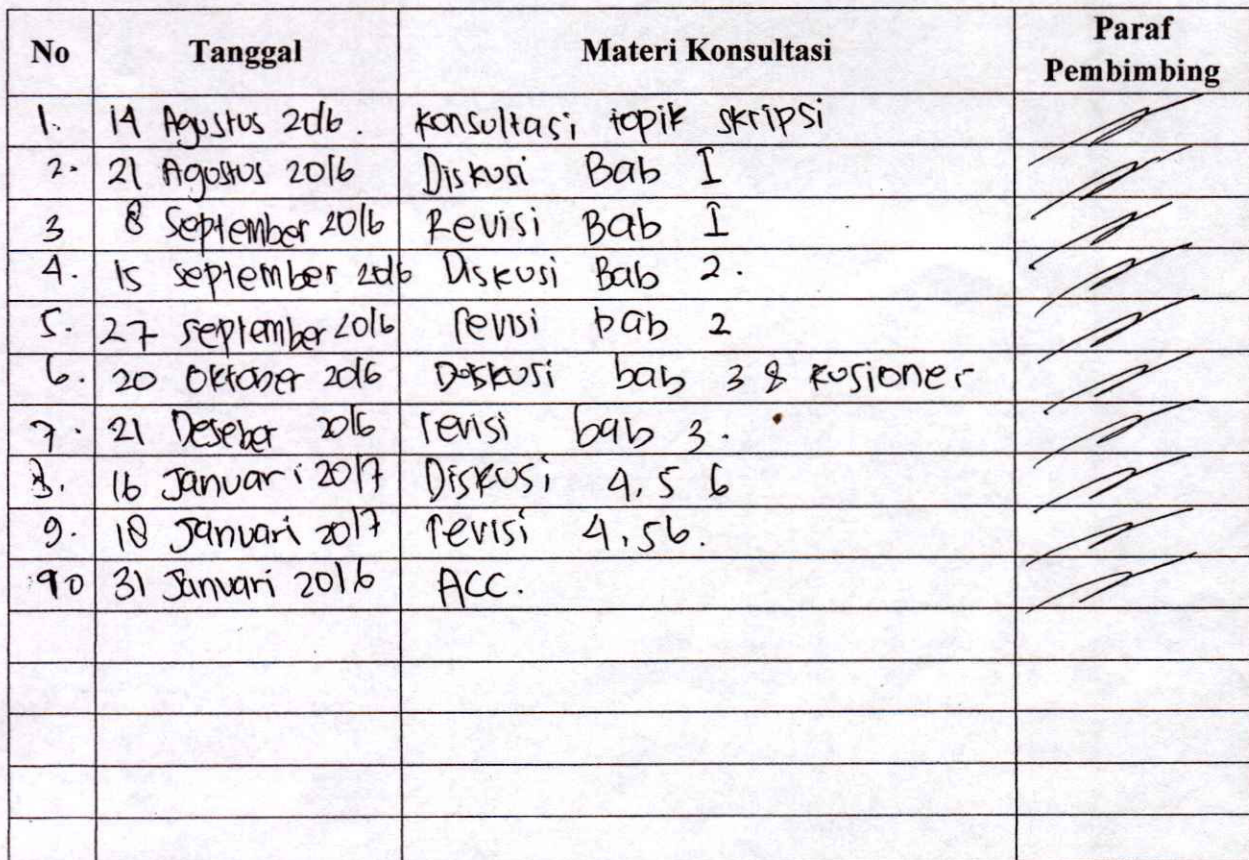 No Tanggal Materi Konsultasi Paraf Pembimbing
1. 14 Agustus 2016. Konsultasi topik skripsi
2. 21 Agustus 2016 Diskusi Bab I
3 8 September 2016 Revisi Bab I
4. 15 september 2016 Diskusi Bab 2.
5. 27 september 2016 revisi bab 2
6. 20 Oktober 2016 Diskusi bab 3 & kusioner
7. 21 Deseber 2016 revisi bab 3.
8. 16 Januari 2017 Diskusi 4,5 6
9. 18 Januari 2017 revisi 4,56.
10 31 Januari 2016 ACC.